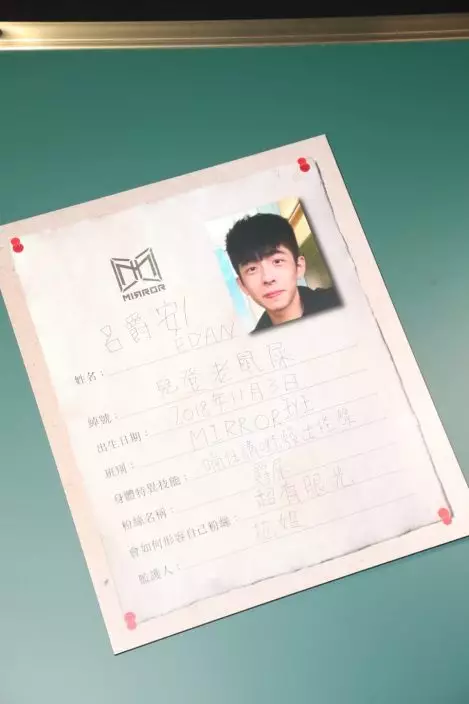 MIRROR
姓名：呂爵安/
EDAN
綽號：兒登老鼠屎
出生日期：2018年11月3日
班別：MIRROR
身體特異技能：
粉絲名稱：
會如何形容自己粉絲：超有眼光
監護人：花姐